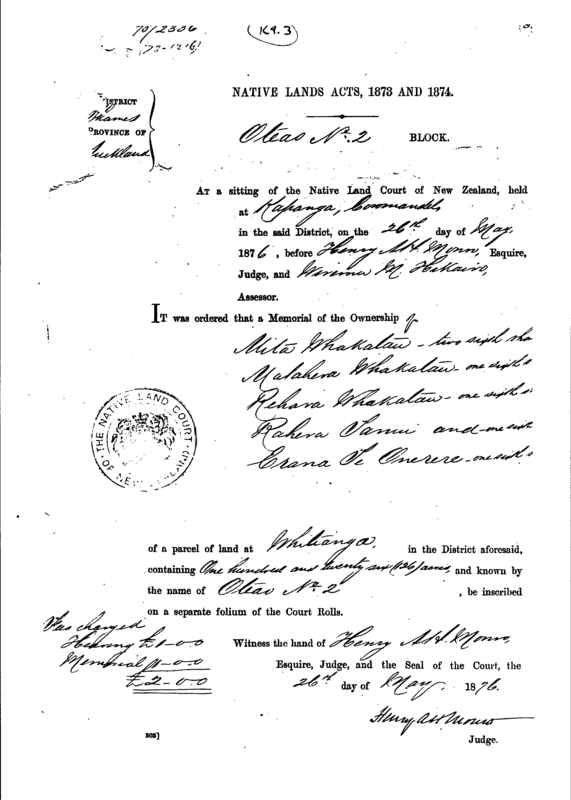 70/2306
(K9.3)
NATIVE LANDS ACTS, 1873 AND 1874.
ISTRICT
Thames
PROVINCE OF
Auckland
Oteao No. 2 BLOCK.
AT a sitting of the Native Land Court of New Zealand, held
at Kapanga, Coromandel,
in the said District, on the 26th day of May
1876, before Henry A H Monro, Esquire,
Judge, and Wiremu M. Hikairo,
Assessor.
IT was ordered that a Memorial of the Ownership of
Mita Whakatau - two sixth sha
Matahera Whakatau - one sixth s
Whakatau - one sixth
and - one sixth
Erana Te Onerere - one sixth s
THE NATIVE LAND COURT OF NEW ZEALAND
of a parcel of land at Whitianga, in the District aforesaid,
containing One hundred and twenty six (126) acres, and known by
the name of Oteao No. 2, be inscribed
on a separate folium of the Court Rolls.
Fees charged
Hearing £1-0-0
Memorial 1-0-0
£2-0-0
Witness the hand of Henry A H Monro,
Esquire, Judge, and the Seal of the Court, the
26th day of May, 1876.
Henry A H Monro
Judge.
303]